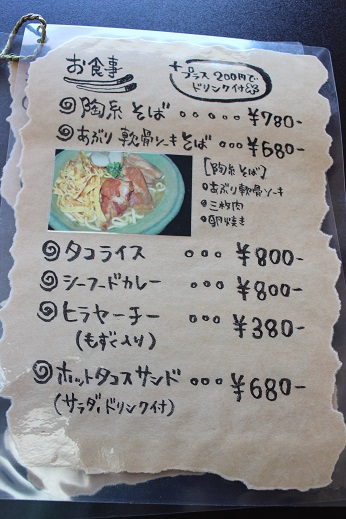 お食事
+プラス200円で
ドリンク付
陶糸そば ・・・・・ ¥780-
あぶり軟骨ソーキそば ・・ ¥680-
[陶糸そば]
あぶり軟骨ソーキ
三枚肉
卵焼き
タコライス ○○○ ¥800-
シーフードカレー ○○○ ¥800-
ヒラヤーチー ○○○ ¥380-
(もずく入り)
ホットタコスサンド ○○○ ¥680-
(サラダ、ドリンク付)